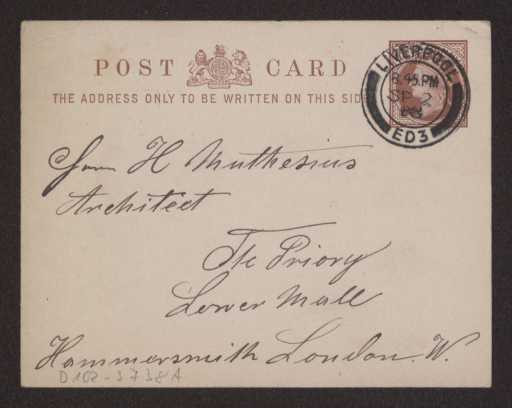 POST CARD
THE ADDRESS ONLY TO BE WRITTEN ON THIS SIDE
LIVERPOOL
8.45.PM
SP 2
ED3
H Muthesius
Architect
The Priory
Lower Mall
Hammersmith London. W.
D 102-3738A